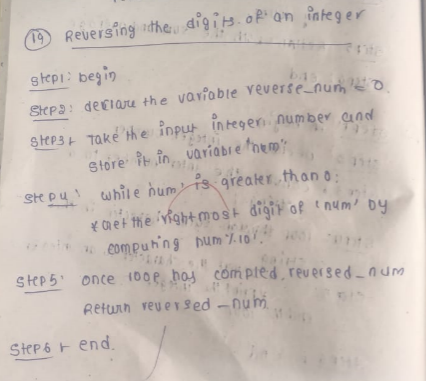 (19) Reversing the digits of an integer
Step1: begin
Step2: declare the variable reverse_num = 0.
Step3: Take the input integer number and
store it in variable "num".
Step4: while 'num' is greater than 0:
* Get the rightmost digit of 'num' by
computing num % 10'.
Step5: once loop has compled. reversed_num
Return reversed_num
Step6: end.